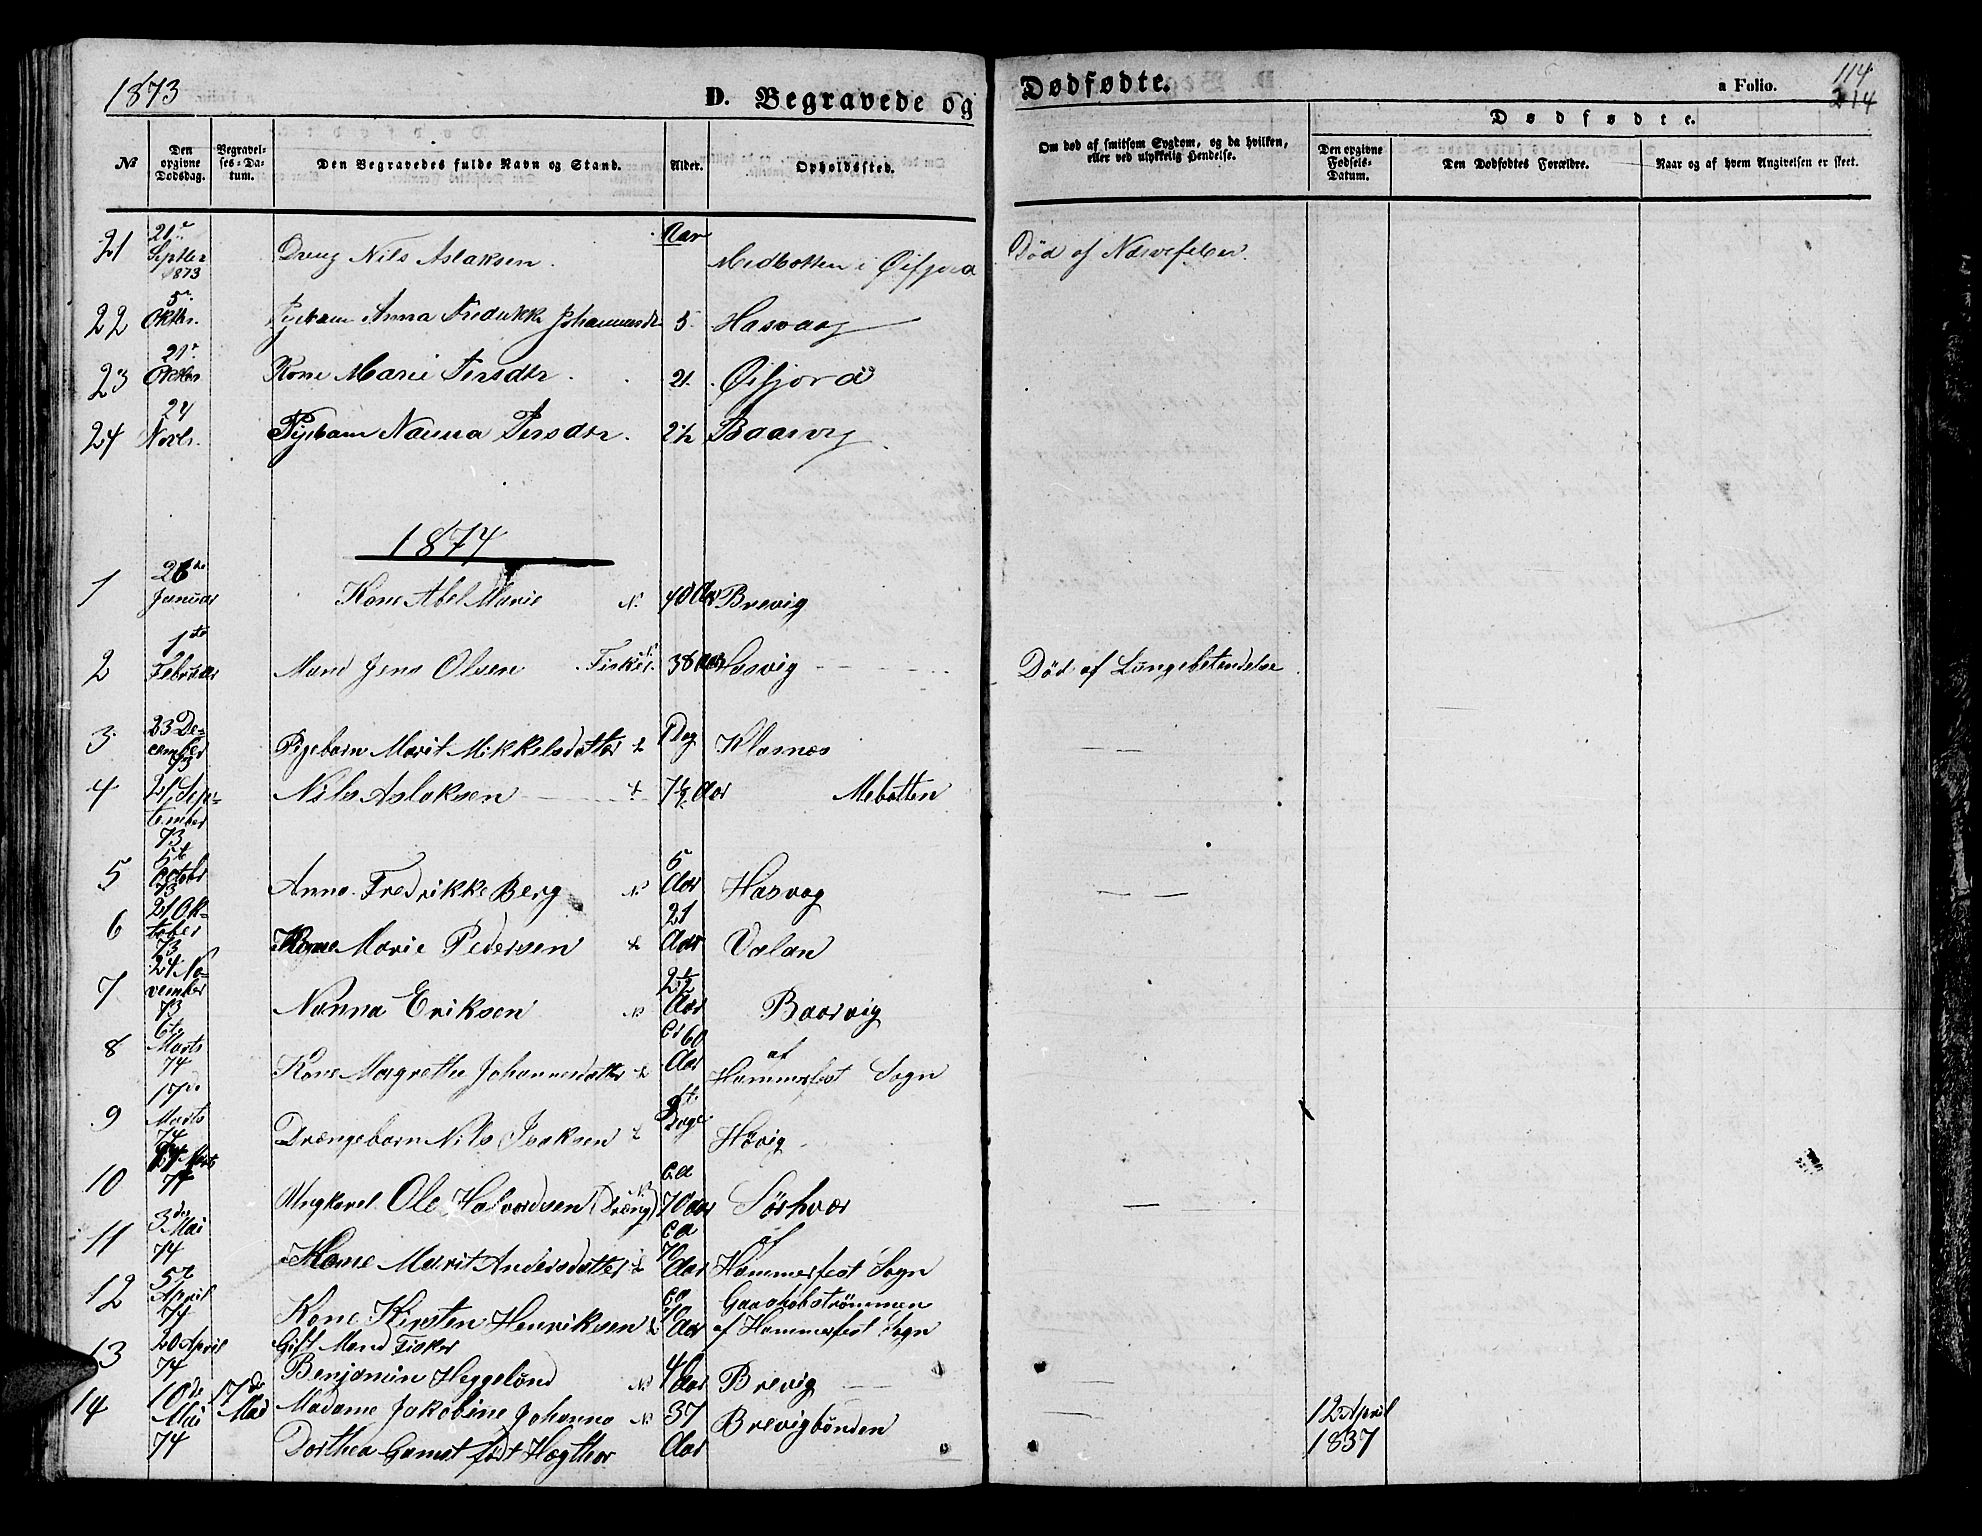 1873
D. Begravede og
Dødfødte.
a Folio.
114
214
No
Den opgivne Dødsdag.
Begravelses-Datum.
Den Begravedes fulde Navn og Stand.
Alder.
Opholdssted.
Om død af smitsom Sygdom, og da hvilken, eller ved ulykkelig Hendelse.
Dødfødte.
Den opgivne Fødsels-Datum.
Den Dødfødtes Forældre.
Naar og af hvem Angivelsen er skeet.
21 21 Septbr 1873 Dreng Nils Aslaksen. Aar Medbotten i Øifjord Død af Nervefeber
22 5 Oktbr. Pigebarn Anna Fredrikke Johannesdtr 5 Hasvaag
23 21 Oktbr Kone Marie Persdtr. 21. Øifjord
24 24 Novbr. Pigebarn Nanna Persdtr. 2½ Baarvig
1874
1 28de Januar Kone Abel Marie N. 40 Aar Brevig
2 1ste Februar Mand Jens Olsen Fisker 38 Aar Hasvig Død af Lungebetendelse
3 23 December 73 Pigebarn Marit Mikkelsdatter 1 Dag Klasnæs
4 21 September 73 Nils Aslaksen 7½ Aar Mebotten
5 5te October 73 Anna Fredrikke Berg N 5 Aar Hasvag
6 21 Oktober 73 Kone Marie Pedersen 21 Aar Valan
7 24 November 73 Nanna Eriksen N 2½ Aar Baarvig
8 6te Marts 74 Kone Margrethe Johannesdatter 60 Aar af Hammerfest Sogn
9 17de Marts 74 Drængebarn Nils Isaksen Dage Hävig
10 Marts 74 Ungkarl Ole Halvordsen (Dræng) N ca 70 aar Sörhvær
11 3die Mai 74 Kone Marit Andersdatter ca 70 Aar af Hammerfest Sogn
12 5te April 74 Kone Kirsten Henriksen ca 70 Aar Gaashobströmmen af Hammerfest Sogn
13 20 April 74 Gift Mand Fisker Benjamin Heggelund N Aar Brevig
14 10de Mai 74 17de Mai Madame Jakobine Johanna N 37 Aar Brevigbunden 12 April 1837
Dorthea Gamst født Hægthor